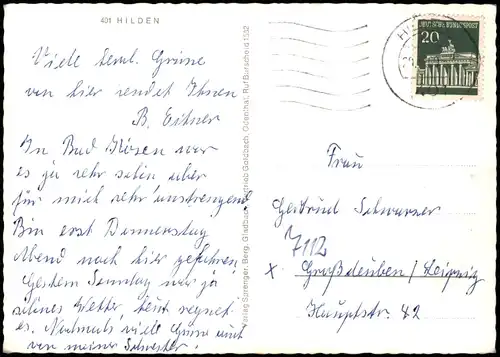 401 HILDEN
Viele herzl. Grüsse
von hier sendet Ihnen
B. Eitner
In Bad Kösen war
es ja sehr schön aber
für mich sehr anstrengend
Bin erst Donnerstag
Abend nach hier gefahren.
Gestern Sonntag war ja
schönes Wetter, heut regnet
es. Nochmals viele Grüsse auch
von meiner Schwester!
Verlag Sprenger, Berg. Gladbach, Vertrieb Goldbach, Odenthal, Ruf Burscheid 1552
20
DEUTSCHE BUNDESPOST
Frau
Gertrud Schwarzer
7112
x Großdeuben / Leipzig
Hauptstr. 42